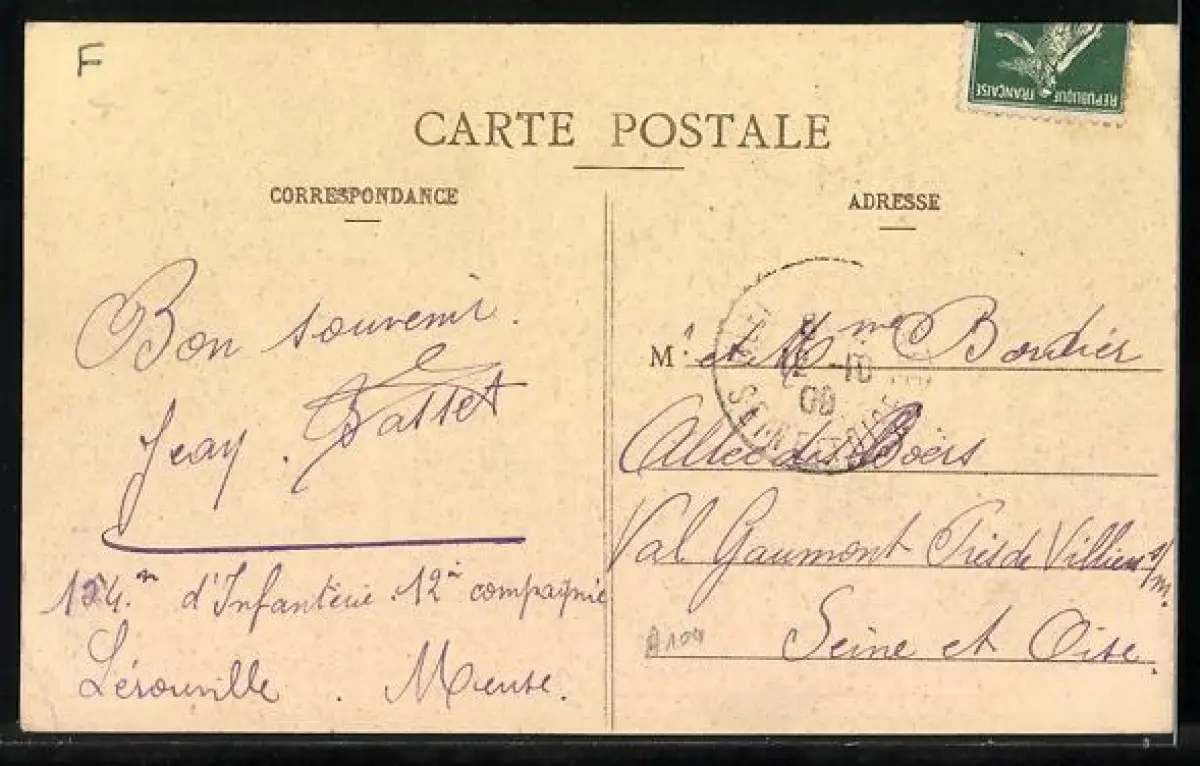 F
RÉPUBLIQUE FRANÇAISE
CARTE POSTALE
CORRESPONDANCE
ADRESSE
Bon souvenir.
Jean. Basset
154.e d'Infanterie 12e compagnie
Lérouville. Meuse.
Mr et Mme Bordier
Allée des Boërs
Val Gaumont Près de Villiers s/m.
Seine et Oise.
12 -10
09
SEINE-ET-OISE
A104